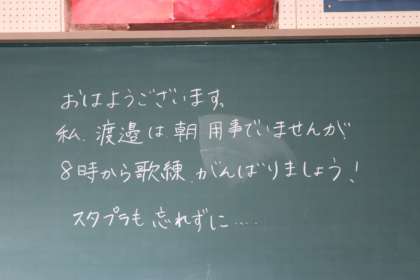 おはようございます。
私、渡邉は朝用事でいませんが、
8時から歌練がんばりましょう!
スタプラも忘れずに……